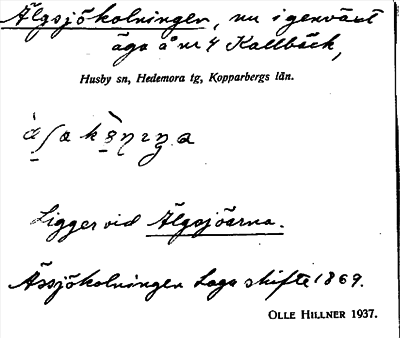 Älgsjökolningen, nu igenväxt
äga å nr 4 Kallbäck,
Husby sn, Hedemora tg, Kopparbergs län.
Ligger vid Älgsjöarna.
Ässjökolningen Laga skifte 1869.
OLLE HILLNER 1937.